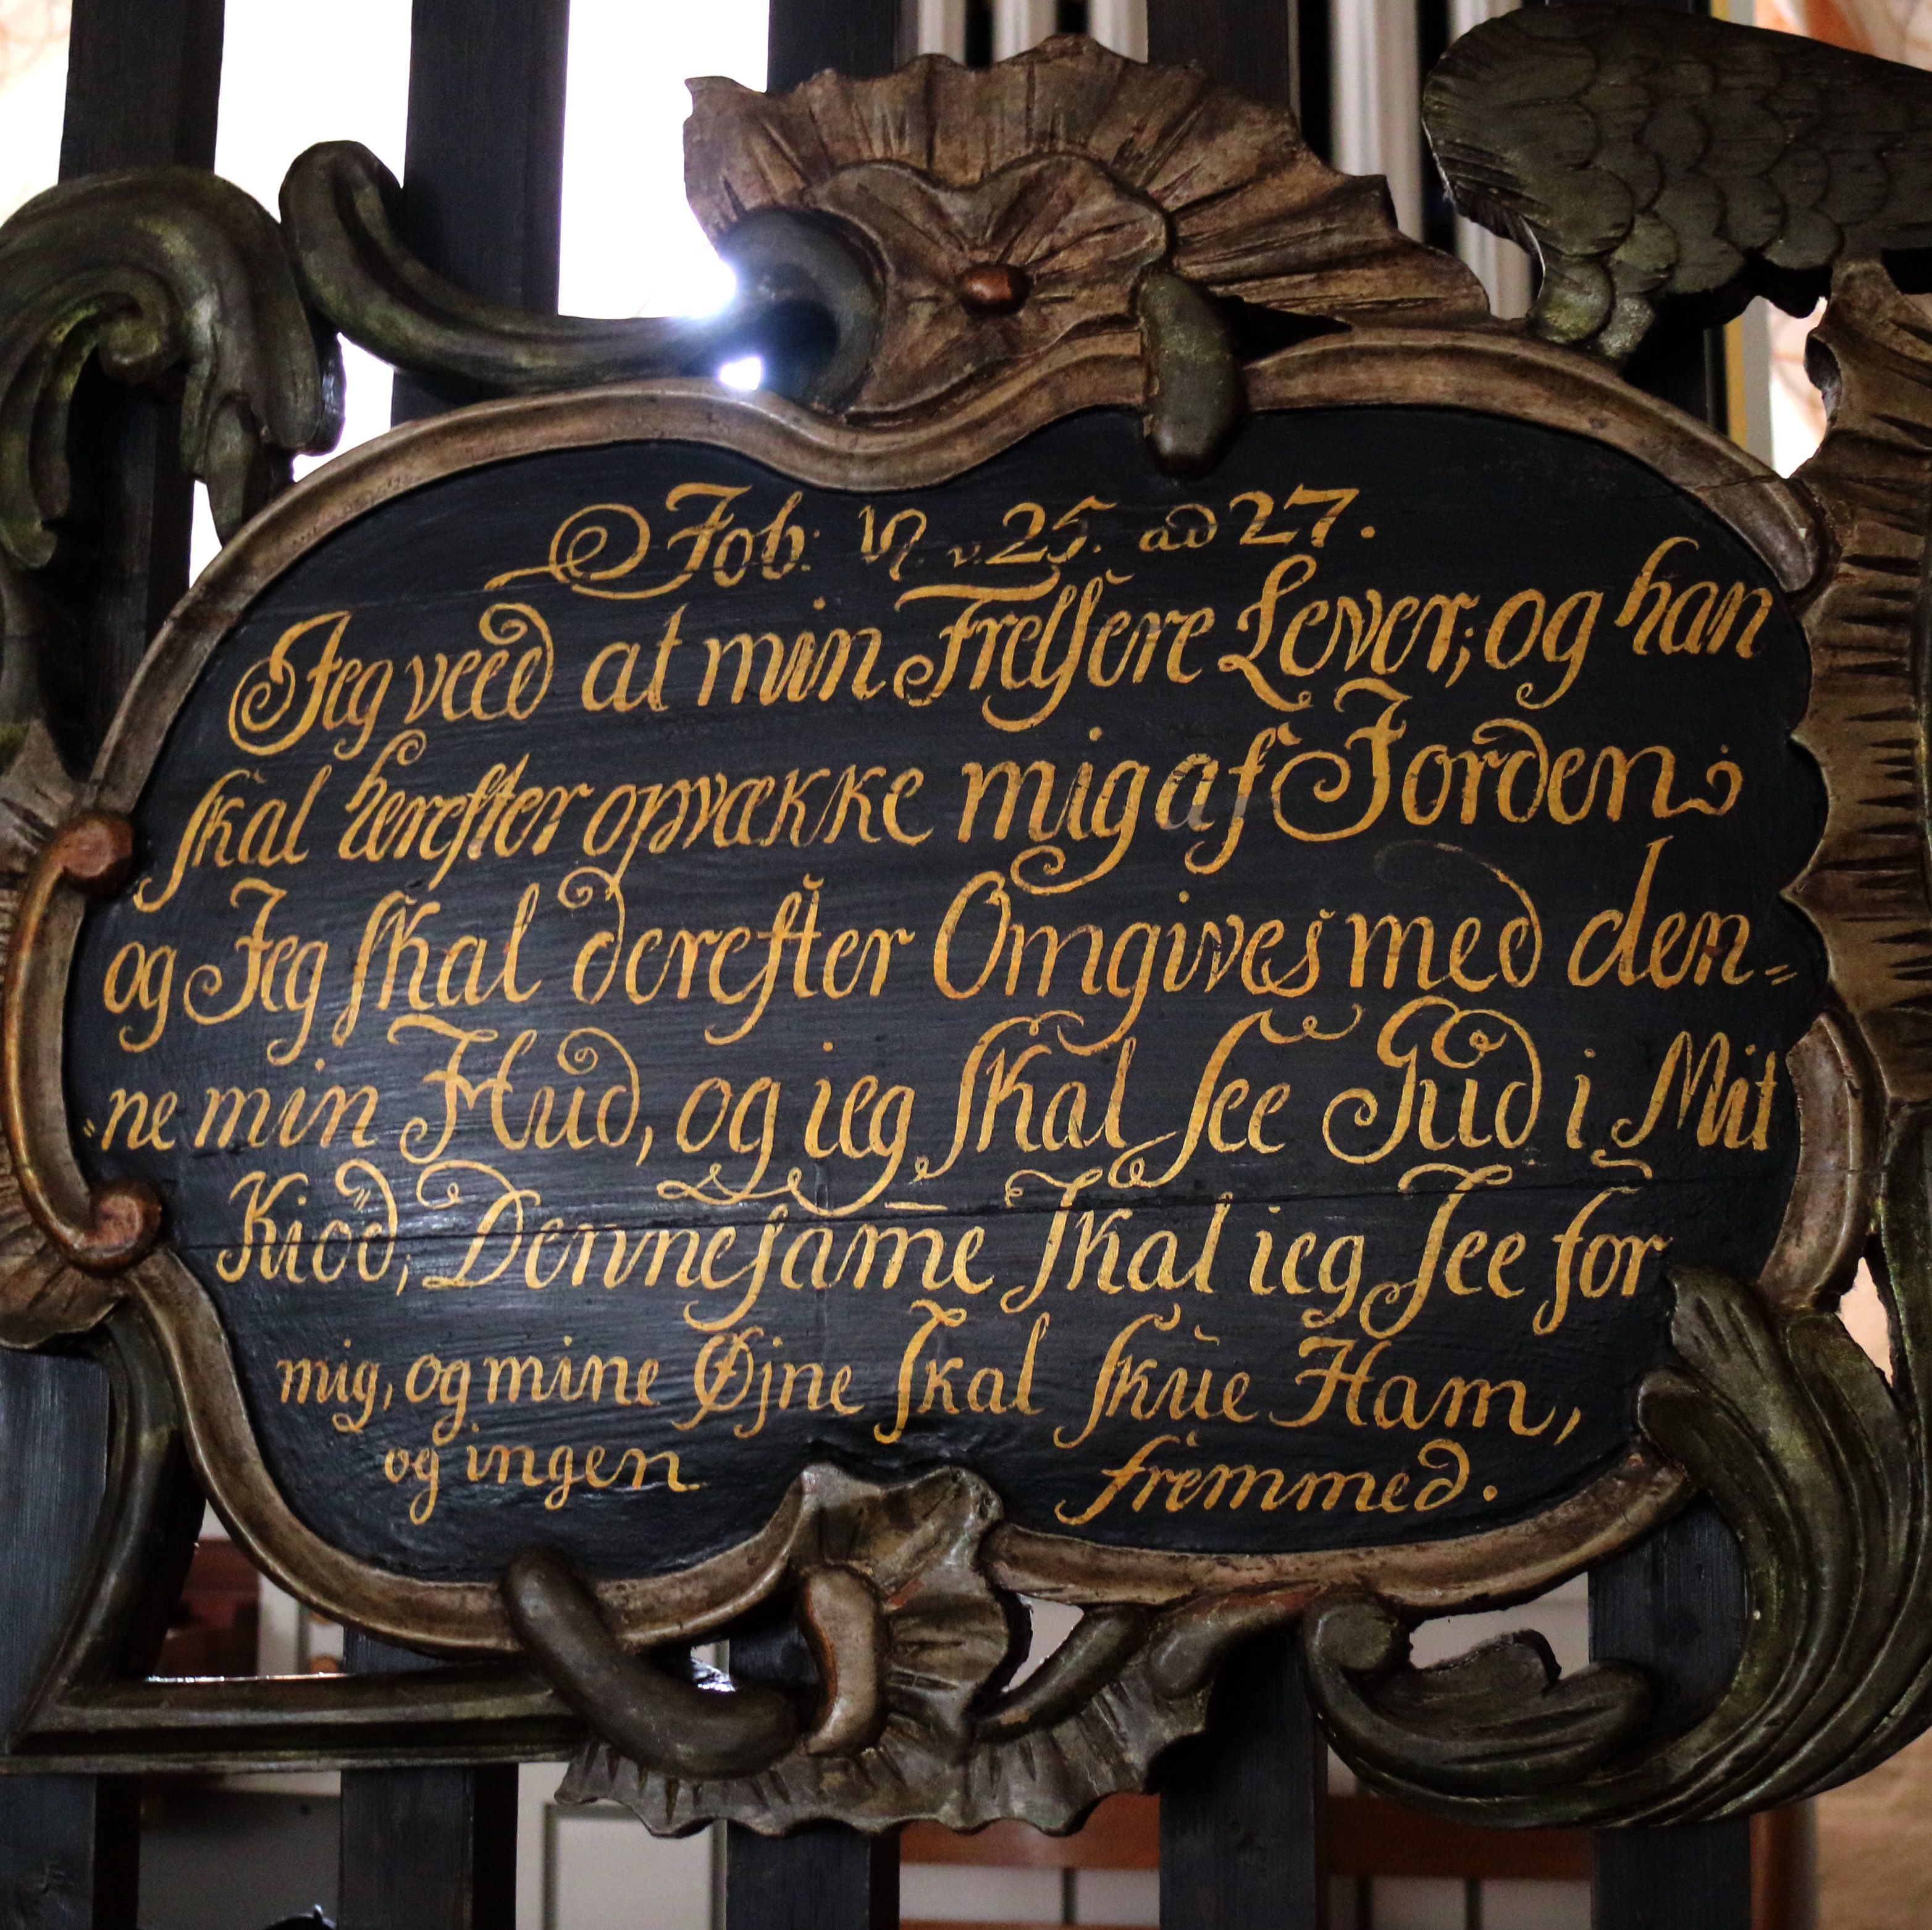 Job: 19. v. 25. ad 27.
Jeg veed at min Frelsere Lever; og han
skal herefter opvække mig af Jorden
og Jeg skal derefter Omgives med den=
=ne min Hud, og ieg skal see Gud i Mit
Kiød, Dennesame skal ieg see for
mig, og mine Øjne skal skue Ham,
og ingen fremmed.